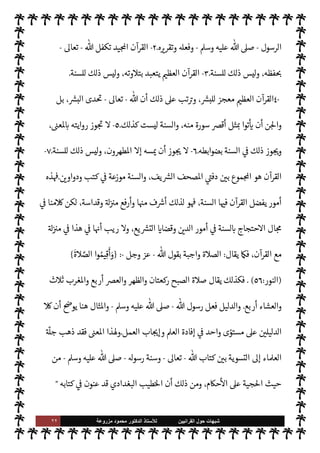 الرسول - صلى الله عليه وسلم - وفعله وتقريره.٢- القرآن المجيد تكفل الله - تعالى -
بحفظه، وليس ذلك للسنة.٣- القرآن العظيم يتعبد بتلاوته، وليس ذلك للسنة.
٤-القرآن العظيم معجز للبشر، وترتب على ذلك أن الله - تعالى - تحدى البشر، بل
والجن أن يأتوا بمثل أقصر سورة منه، والسنة ليست كذلك.٥- لا تجوز روايته بالمعنى،
ويجوز ذلك في السنة بضوابطه.٦- لا يجوز أن يمسه إلا المطهرون, وليس ذلك للسنة.٧-
القرآن هو المجموع بين دفتي المصحف الشريف، والسنة موزعة في كتب ودواوين.فهذه
أمور يفضل القرآن فيها السنة، فهو لذلك أشرف منها وأرفع منزلة وقداسة، لكن كلامنا في
مجال الاحتجاج بالسنة في أمور الدين وقضايا التشريع، ولا ريب أنها في هذا في منزلة
مع القرآن، فكما يقال: الصلاة واجبة بقول الله - عز وجل -: (وَأَقِيمُوا الصَّلاةَ)
(النور:٥٦) . فكذلك يقال صلاة الصبح ركعتان والظهر والعصر أربع والمغرب ثلاث
والعشاء أربع. والدليل فعل رسول الله - صلى الله عليه وسلم - والمثال هنا يوضح أن كلا
الدليلين على مستوى واحد في إفادة العلم وإيجاب العمل.ولهذا المعنى فقد ذهب جلّة
العلماء إلى التسوية بين كتاب الله - تعالى - وسنة رسوله - صلى الله عليه وسلم - من
حيث الحجية على الأحكام، ومن ذلك أن الخطيب البغدادي قد عنون في كتابه "
شبهات حول القرآنيين للأستاذ الدكتور محمود مزروعة ٢٢